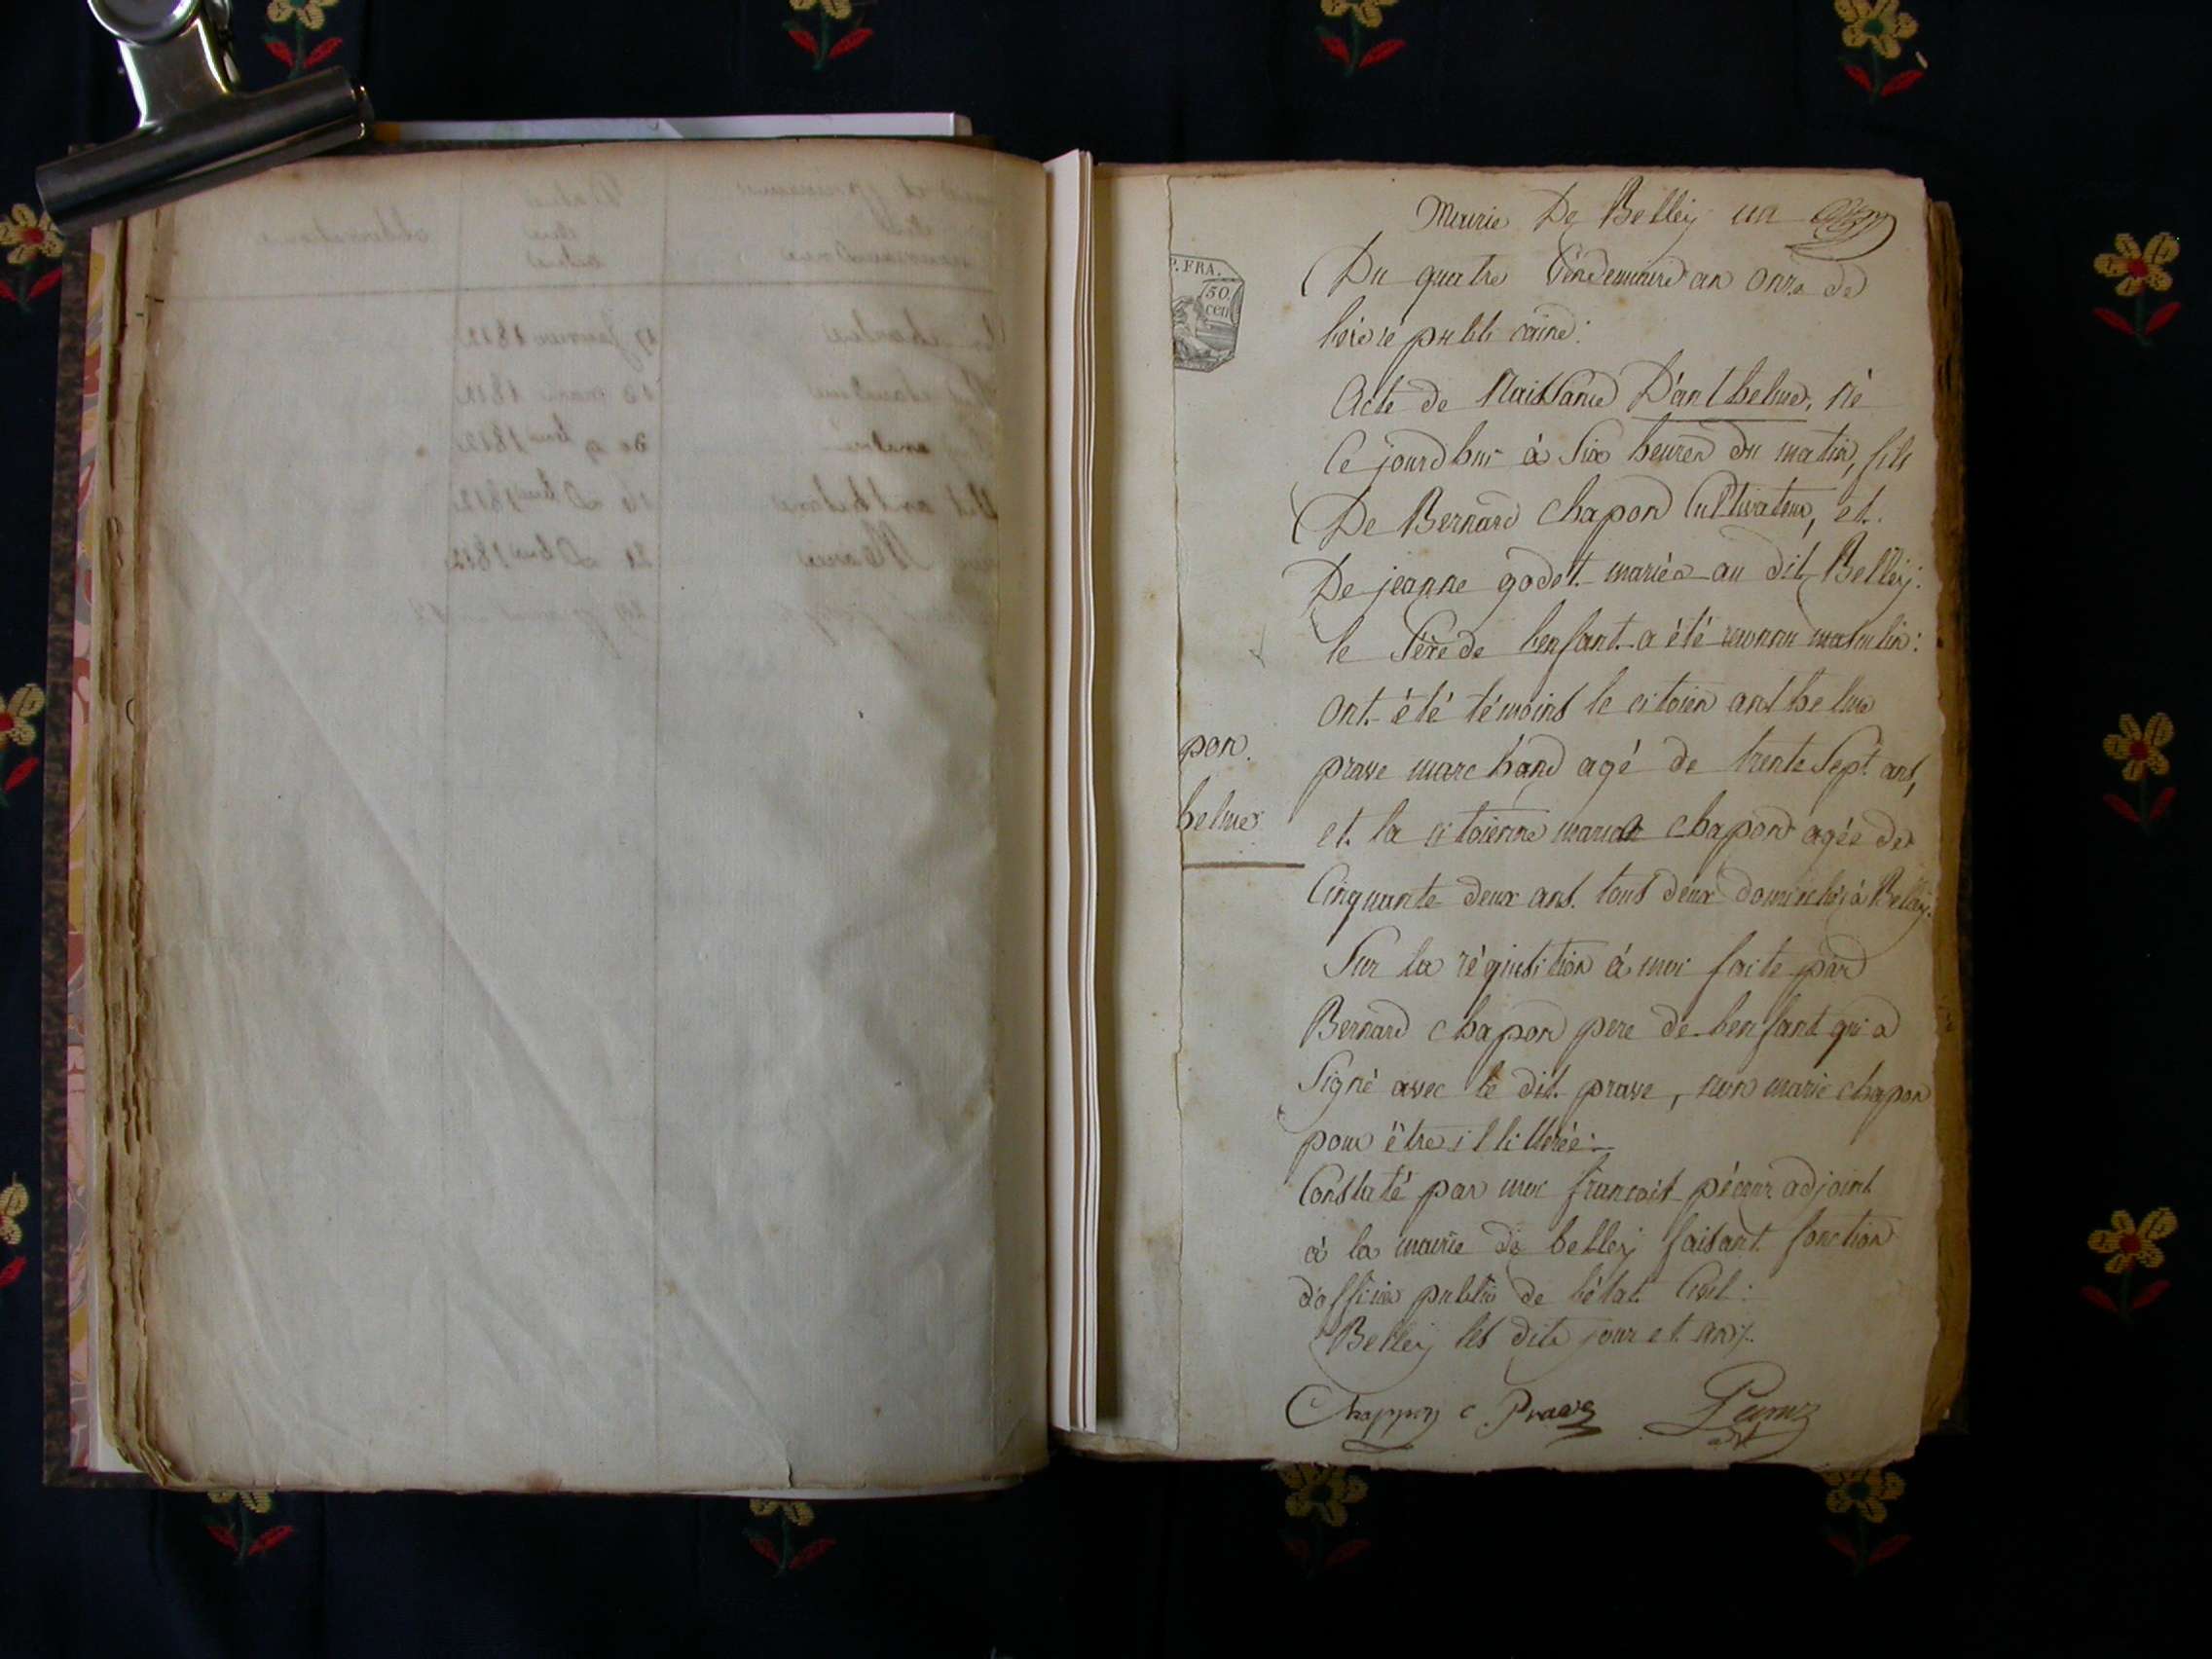 Mairie De Belley un
P. FRA.
50.
cen
Du quatre Vendemiaire an onze de
l'ère républicaine:
Acte de Naissance D'anthelme, né
Ce jourdhui à Six heures du matin, fils
De Bernard Chapon Cultivateur, et.
De jeanne godet mariés au dit Belley:
le Sexe de l'enfant a été reconnu masculin:
Ont été témoins le citoien anthelme
prave marchand agé de trente Sept ans,
pon.
et la citoienne marie chapon agée de
helme
Cinquante deux ans. tous deux domiciliés à Belley.
Sur la réquisition à moi faite par
Bernard chapon pere de l'enfant qui a
Signé avec le dit prave, non marie chapon
pour être illittérée:
Constaté par moi francois pécour adjoint
à la mairie de belley faisant fonction
d'officier public de l'état Civil:
Belley les dits jour et an
Chappon C Prave